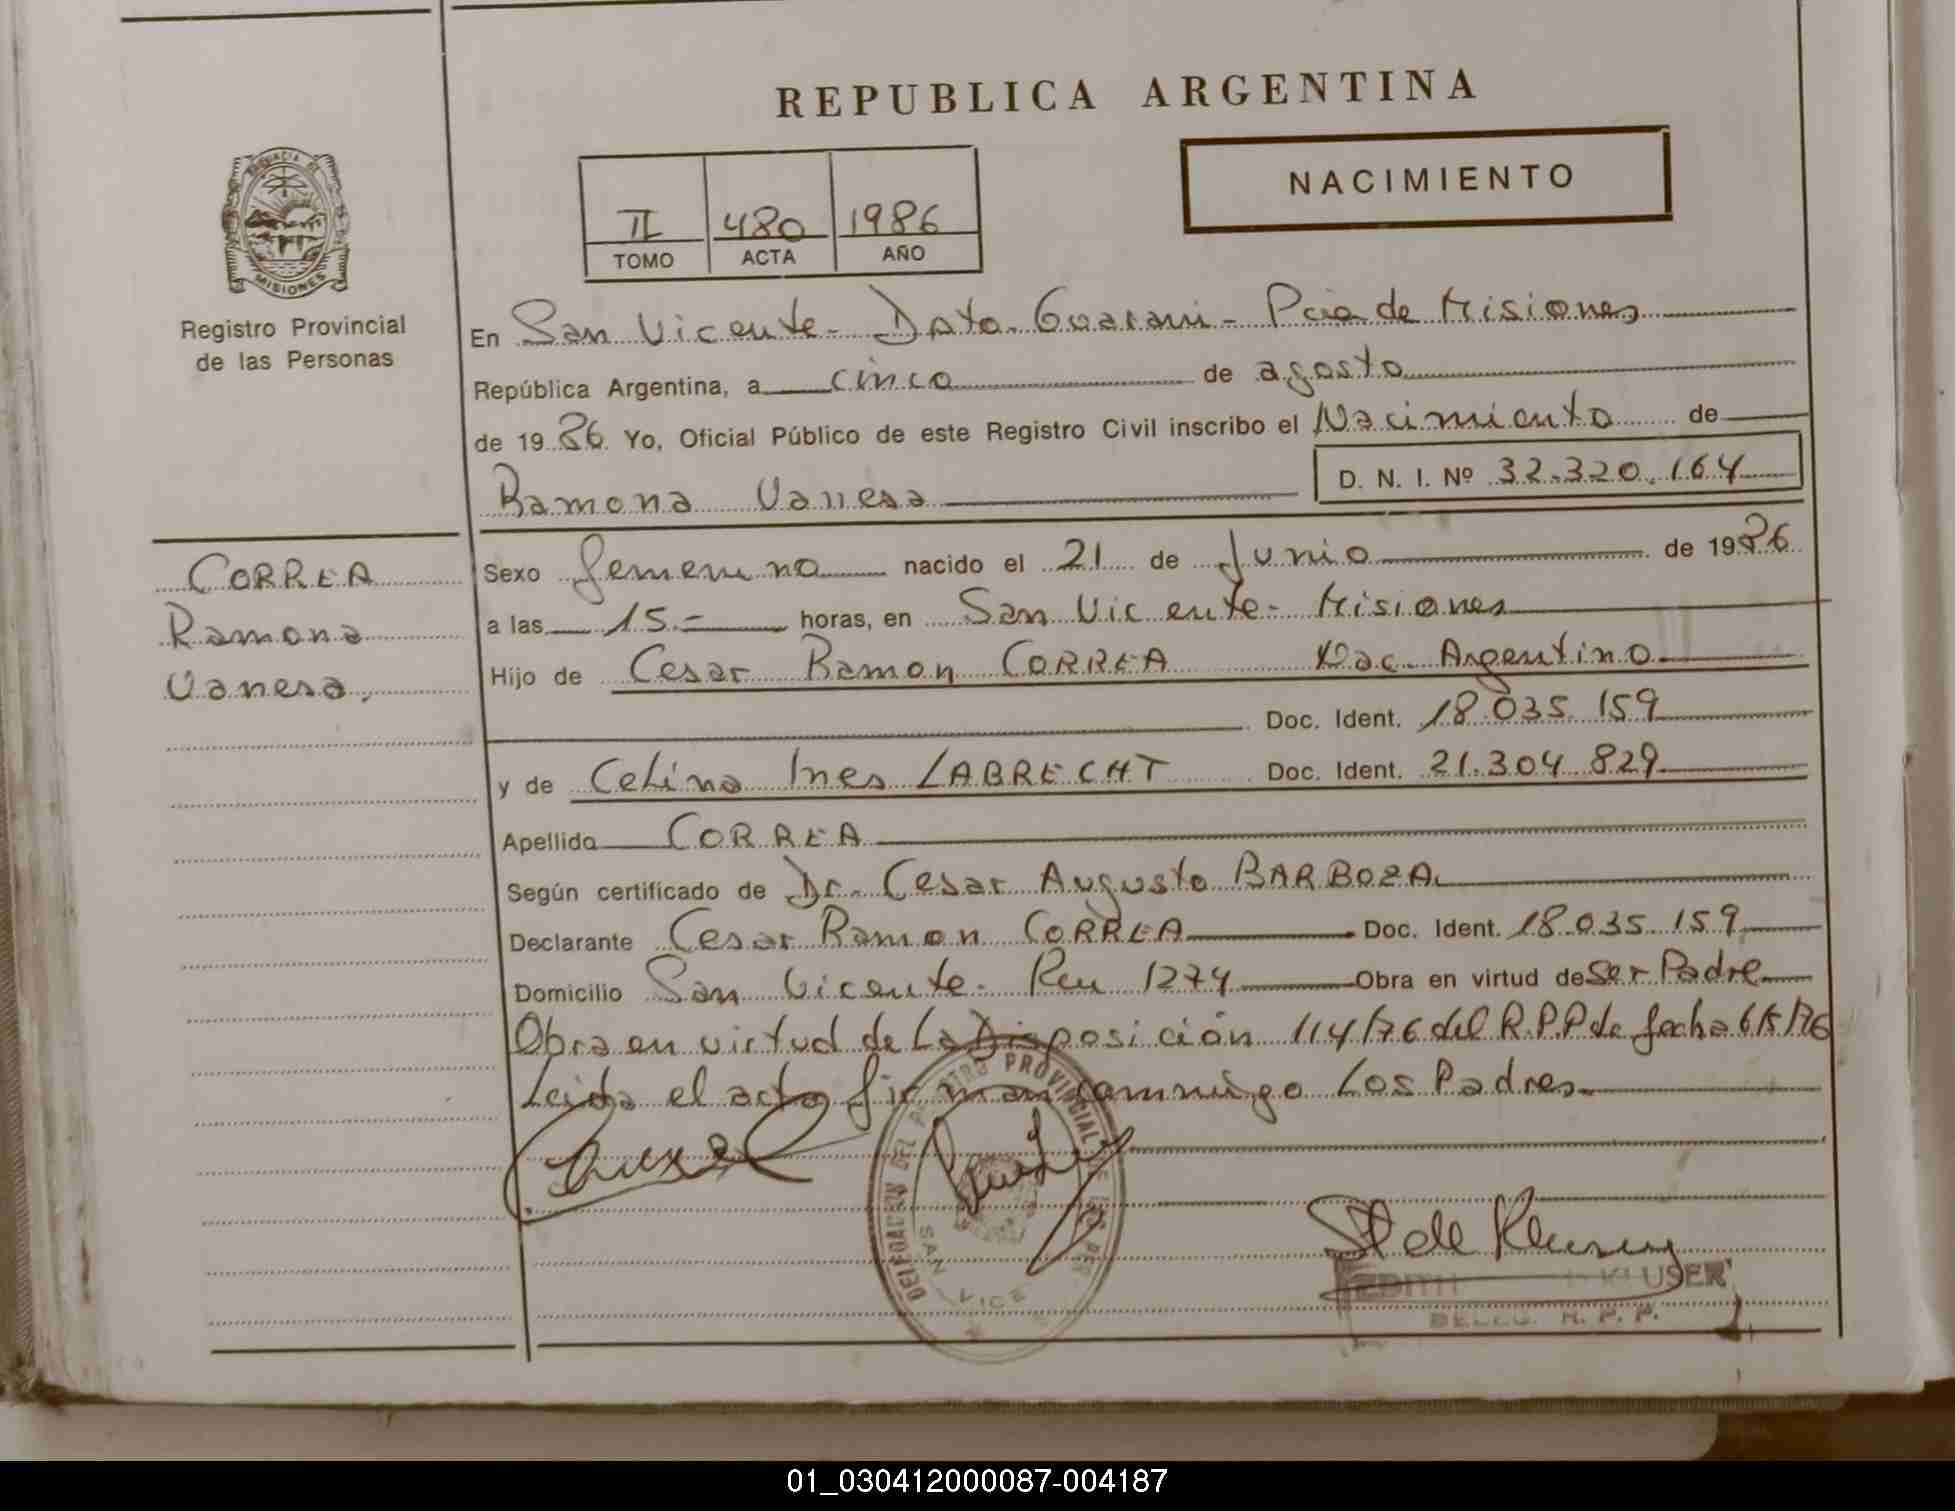 REPUBLICA ARGENTINA
NACIMIENTO
II 480 1986
TOMO ACTA AÑO
PROVINCIA DE
MISIONES
Registro Provincial
de las Personas
En San Vicente - Dpto. Guarani - Pcia de Misiones
República Argentina, a cinco de agosto
de 1986 Yo, Oficial Público de este Registro Civil inscribo el Nacimiento de
Ramona Vanesa D. N. I. Nº 32.320.164
CORREA
Ramona
Vanesa.
Sexo femenino nacido el 21 de Junio de 1986
a las 15.- horas, en San Vicente - Misiones
Hijo de Cesar Ramon CORREA Nac. Argentino
Doc. Ident. 18.035.159
y de Celina Ines LABRECHT Doc. Ident. 21.304.829
Apellido CORREA
Según certificado de Dr. Cesar Augusto BARBOZA.
Declarante Cesar Ramon CORREA Doc. Ident. 18.035.159
Domicilio San Vicente - Km 1274 Obra en virtud de ser Padre
Obra en virtud de La Disposición 114/76 del R.P.P de fecha 6/5/76
Leida el acta firman conmigo Los Padres.
DELEGACION DEL REGISTRO PROVINCIAL DE LAS PER
SAN VICE
EDITH KLUSER
R. P. P.
01_030412000087-004187